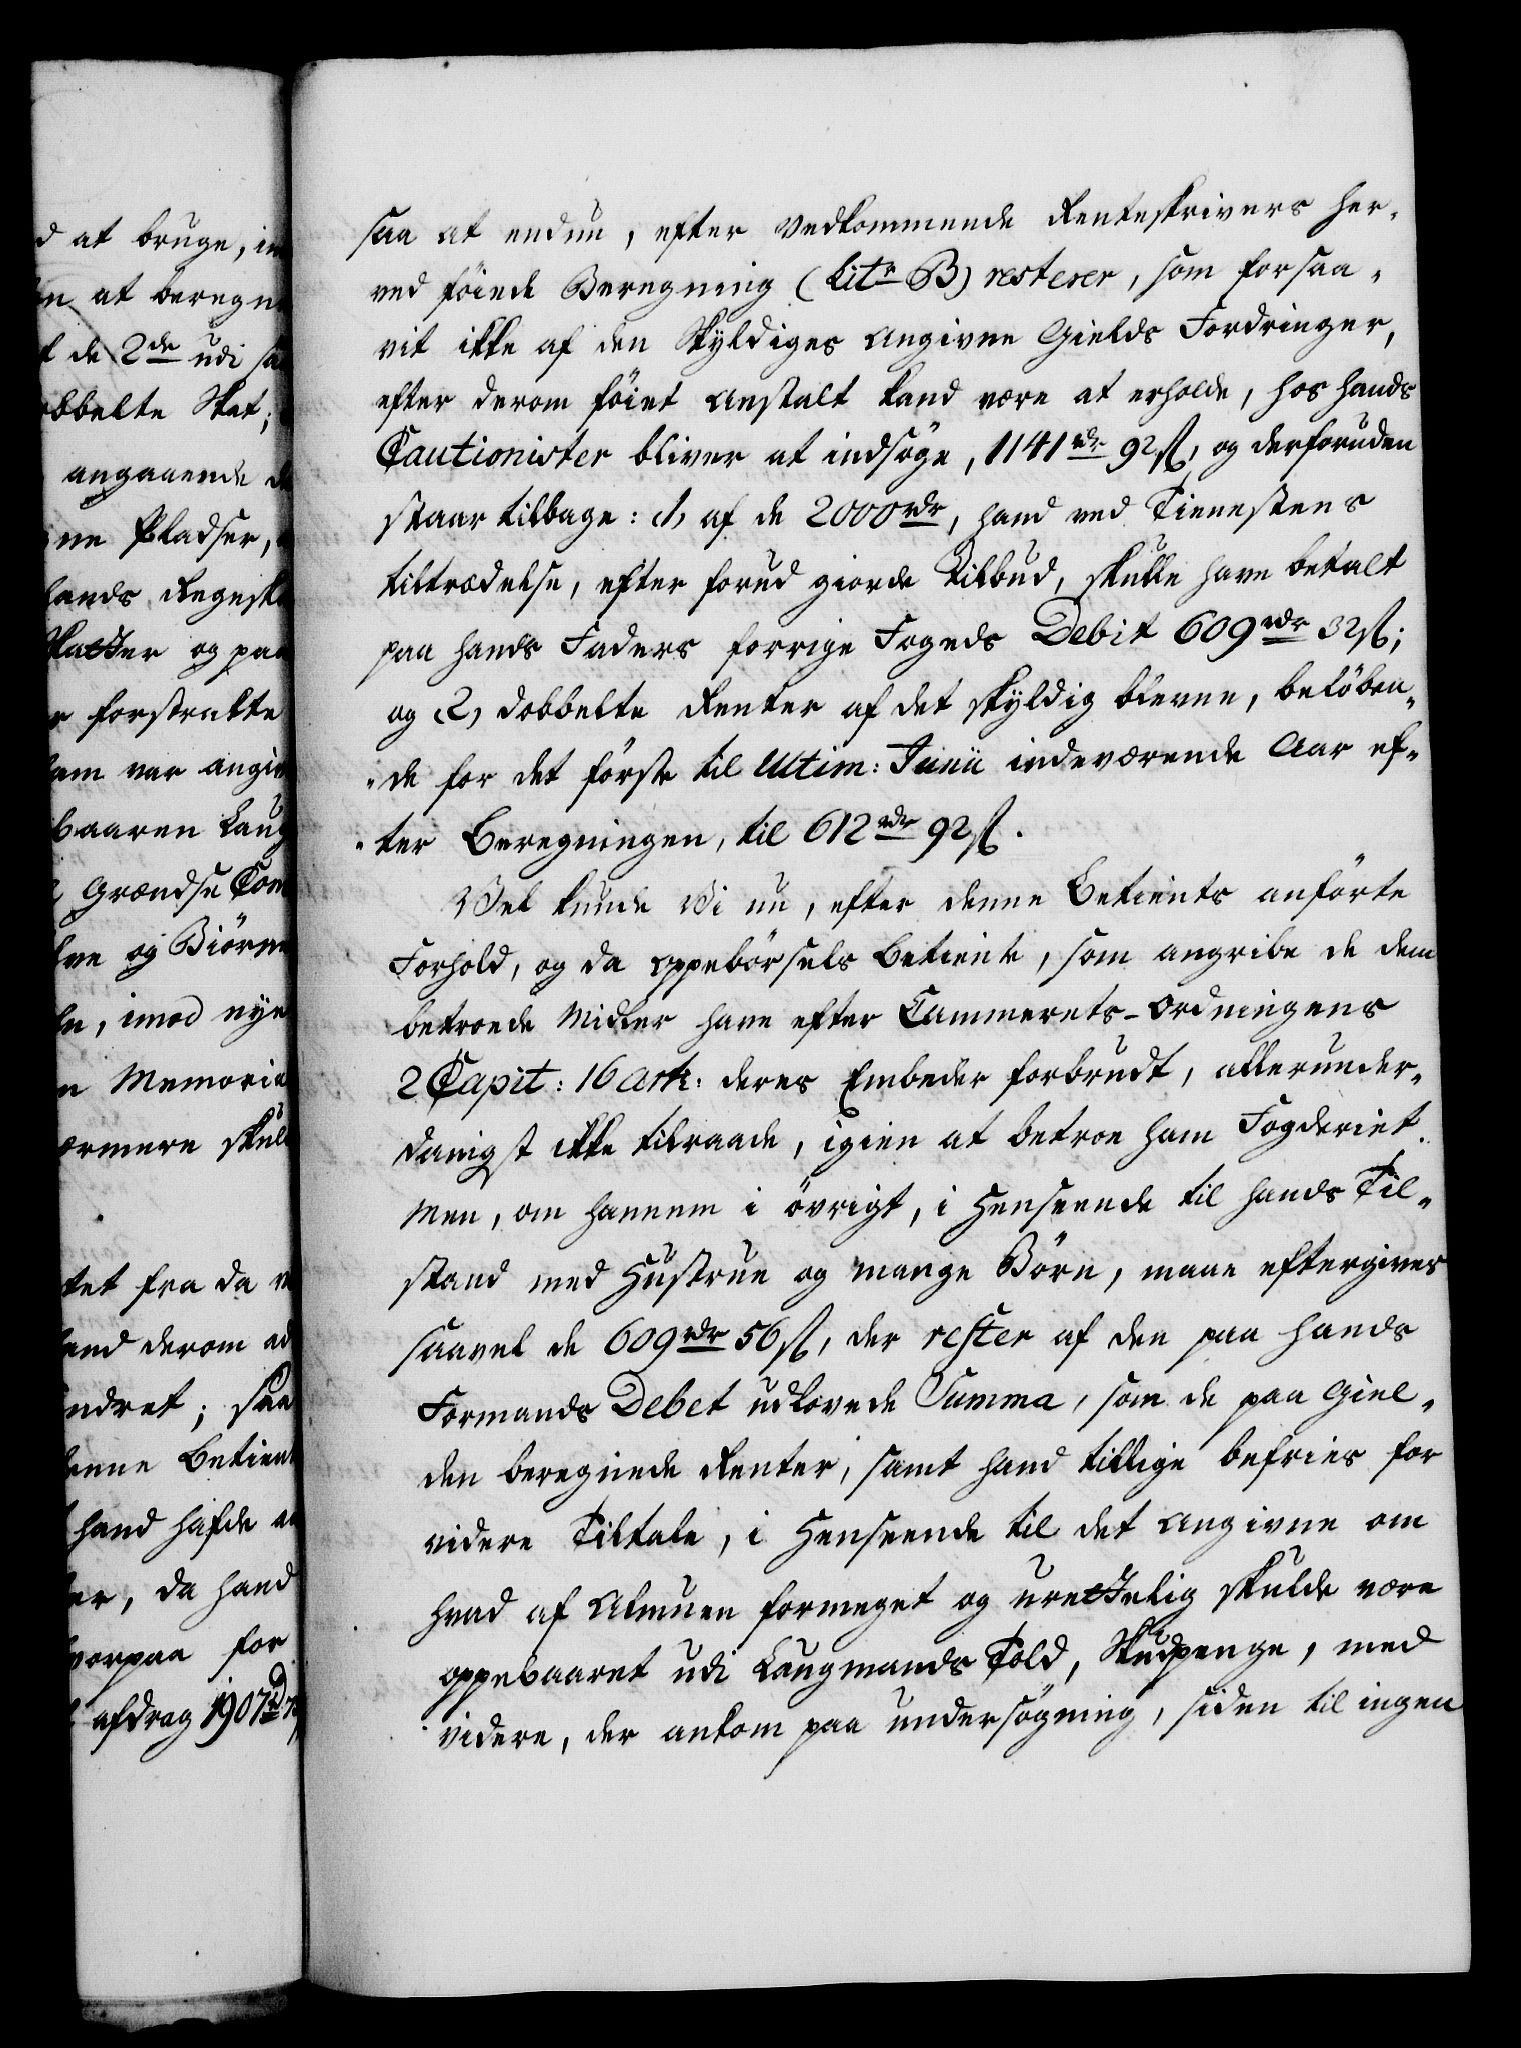 d at bruge, in
en at beregne
f de 2de udi sa
obbelte Skat;
angaaende d
ne Pladser,
hands Regnsk
Skatter og paa
r forstrakte
ham var angiv
baaren Laug
Grændse Com
lve og Biörne
le, imod nye
n Memoria
ærmere skul
tet fra da v
hand derom ad
ndret; saa
denne Betient
hand hafde a
er, da hand
vorpaa for
afdrag 1907rd
saa at endnu, efter vedkommende Renteskrivers her-
ved föiede Beregning (Litr B) resterer, som forsaa-
vit ikke af den Skyldiges angivne Gields Fordringer,
efter derom föiet Anstalt kand være at erholde, hos hands
Cautionister bliver at indsöge, 1141rdr 92ß, og derforuden
staar tilbage: 1, af de 2000rdr, hand ved Tienestens
tiltrædelse, efter forud giorde Tilbud, skulle have betalt
paa hands Faders forrige Fogeds Debit 609rdr 32ß;
og 2, dobbelte Renter af det skyldig blevne, beløben-
de for det förste til Ultim: Junii indeværende Aar ef-
ter Beregningen, til 612rdr 92ß.
Vel kunde Vi nu, efter denne Betients anförte
Forhold, og da oppebörsels Betiente, som angribe de dem
betroede Midler have efter Cammerets-Ordningens
2 Capit: 16 Artr: deres Embeder forbrudt, allerunder-
danigst ikke tilraade, igien at betroe ham Fogderiet.
Men, om hannem i övrigt, i Henseende til hands Til-
stand med Hustrue og mange Börn, maae eftergives
saavel de 609rdr 56ß, der rester af den paa hands
Formands Debet udlovede Summa, som de paa Giel-
den beregnede Renter, samt hand tillige befries for
videre Tiltale, i Henseende til det angivne om
hvad af Almuen formeget og urettelig skulde være
oppebaaret udi Laugmands Told, Skudspenge, med
videre, der ankom paa undersögning, siden til ingen